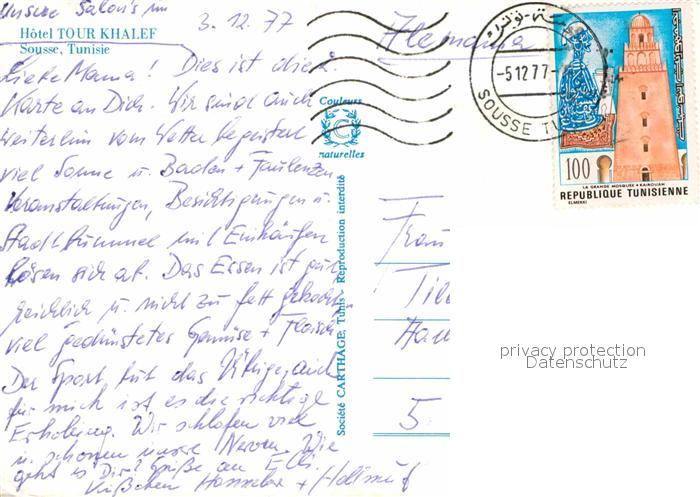 unsere Salon's im
3.12.77
Hôtel TOUR KHALEF
Sousse, Tunisie
Liebe Mama! Dies ist die
Karte an Dich. Wir sind auch
weiterhin vom Wetter begeistert
viel Sonne u. Baden + Faulenzen
Veranstaltungen, Besichtigungen u.
Stadtbummel mit Einkäufen
lösen sich ab. Das Essen ist gut
reichlich u. nicht zu fett gekocht,
viel gedünstetes Gemüse + Fleisch
Der Sport tut das Übrige, auch
für mich ist es die richtige
Erholung. Wir schlafen viel
u. schonen unsere Nerven. Wie
geht es Dir? Grüße an
Küßchen Hannelore + Hellmut
Couleurs
C
naturelles
Société CARTHAGE, Tunis - Reproduction interdite
Alemania
-5 12 77
SOUSSE
100
LA GRANDE MOSQUEE • KAIROUAN
REPUBLIQUE TUNISIENNE
ELMEKKI
Frau
5
privacy protection
Datenschutz